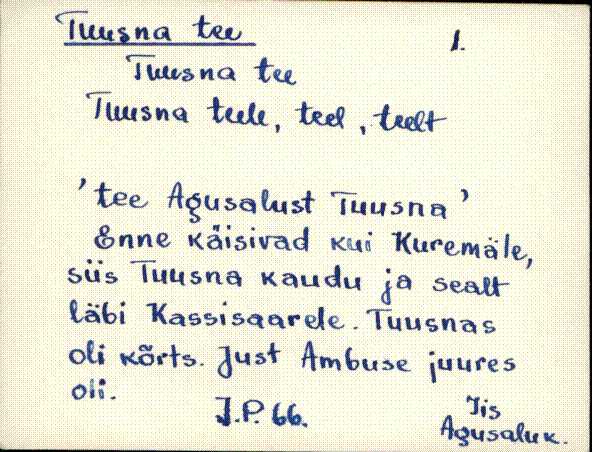 Tuusna tee
1.
Tuusna tee
Tuusna teele, teel, teelt
'tee Agusalust Tuusna'
Enne käisivad kui Kuremäle,
siis Tuusna kaudu ja sealt
läbi Kassisaarele. Tuusnas
oli kõrts. Just Ambuse juures
oli.
J.P. 66.
Iis
Agusaluk.